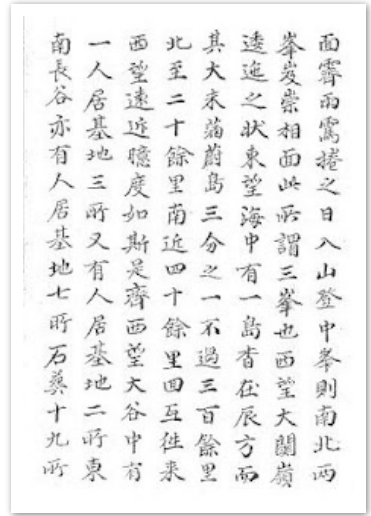 面霽雨靄捲之日入山登中峯則南北兩
峯岌崇相面此所謂三峯也西望大關嶺
逶迤之狀東望海中有一島杳在辰方而
其大未滿蔚島三分之一不過三百餘里
北至二十餘里南近四十餘里回互往来
西望遠近臆度如斯是齊西望大谷中有
一人居基地三所又有人居基地二所東
南長谷亦有人居基地七所石葬十九所